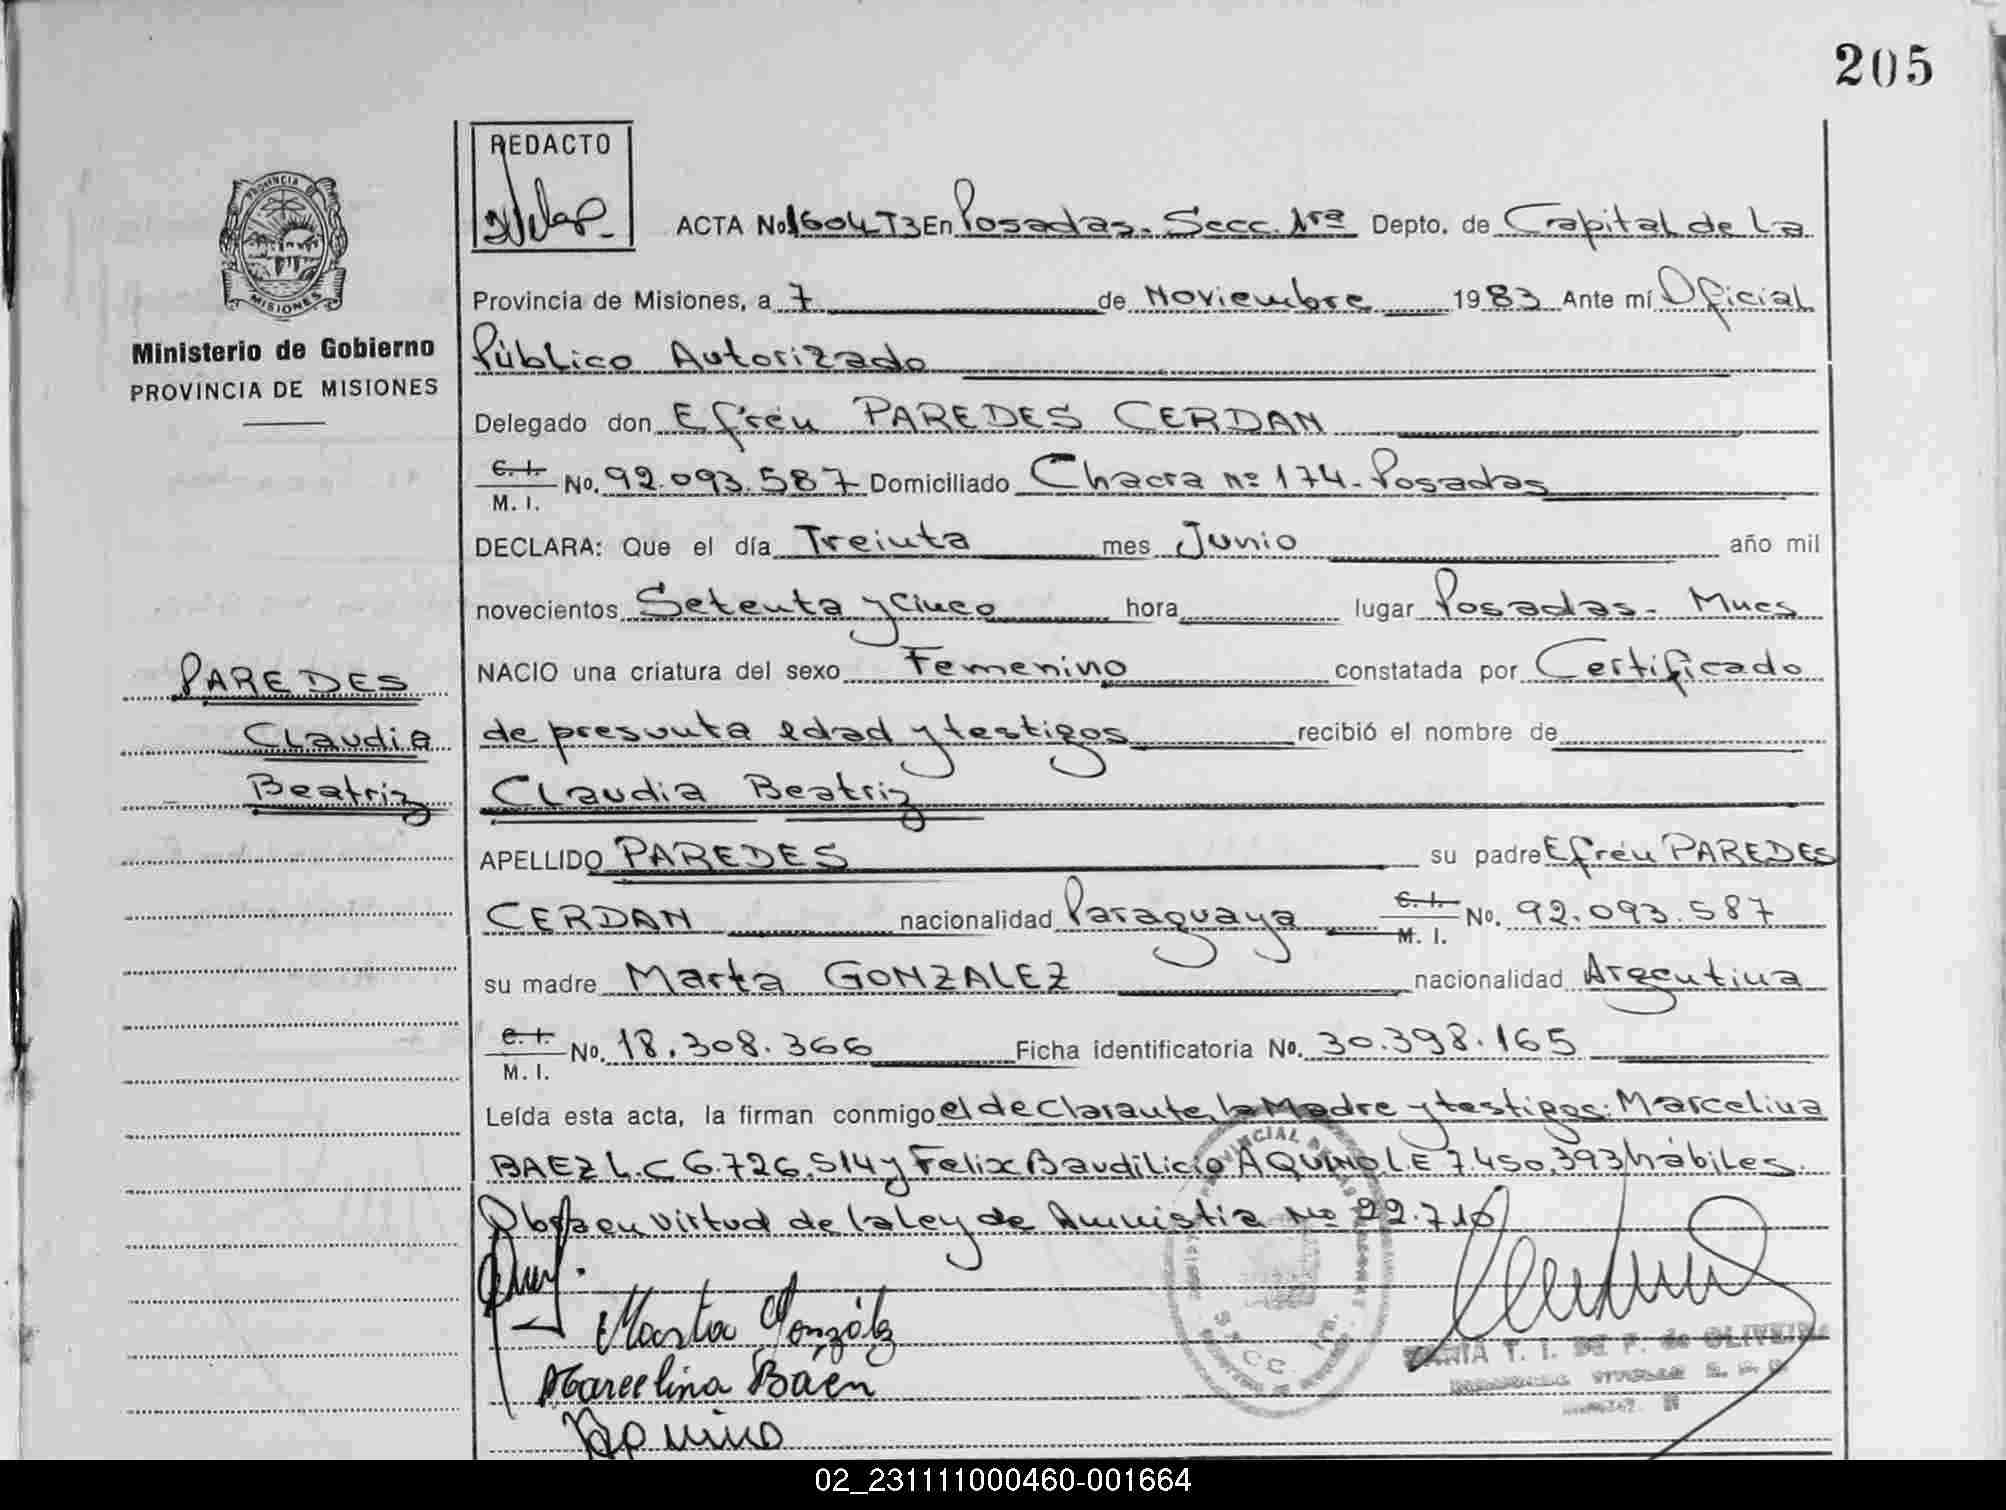 205
REDACTO
ACTA No 1604 T3 En Posadas. Secc. 1ra Depto. de Capital de La
Provincia de Misiones, a 7 de Noviembre 1983 Ante mí Oficial
Público Autorizado
Delegado don Efrén PAREDES CERDAN
C. I. M. I. No. 92.093.587 Domiciliado Chacra nº 174 - Posadas
DECLARA: Que el día Treinta mes Junio año mil
novecientos Setenta y Cinco hora lugar Posadas - Mnes
NACIO una criatura del sexo Femenino constatada por Certificado
de presunta edad y testigos recibió el nombre de
Claudia Beatriz
APELLIDO PAREDES su padre Efrén PAREDES
CERDAN nacionalidad Paraguaya C. I. M. I. No. 92.093.587
su madre Marta GONZALEZ nacionalidad Argentina
C. I. M. I. No. 18.308.366 Ficha identificatoria No. 30.398.165
Leída esta acta, la firman conmigo el declarante, la Madre y testigos: Marcelina
BAEZ L.C 6.726.514 y Felix Baudilicio AQUINO L.E 7.450.393 hábiles.
Obra en virtud de la Ley de Amnistia nº 22.710
Marta González
Marcelina Báez
Aquino
MARIA T. I. DE F. de OLIVEIRA
PROVINCIA DE
MISIONES
Ministerio de Gobierno
PROVINCIA DE MISIONES
PAREDES
Claudia
Beatriz
02_231111000460-001664